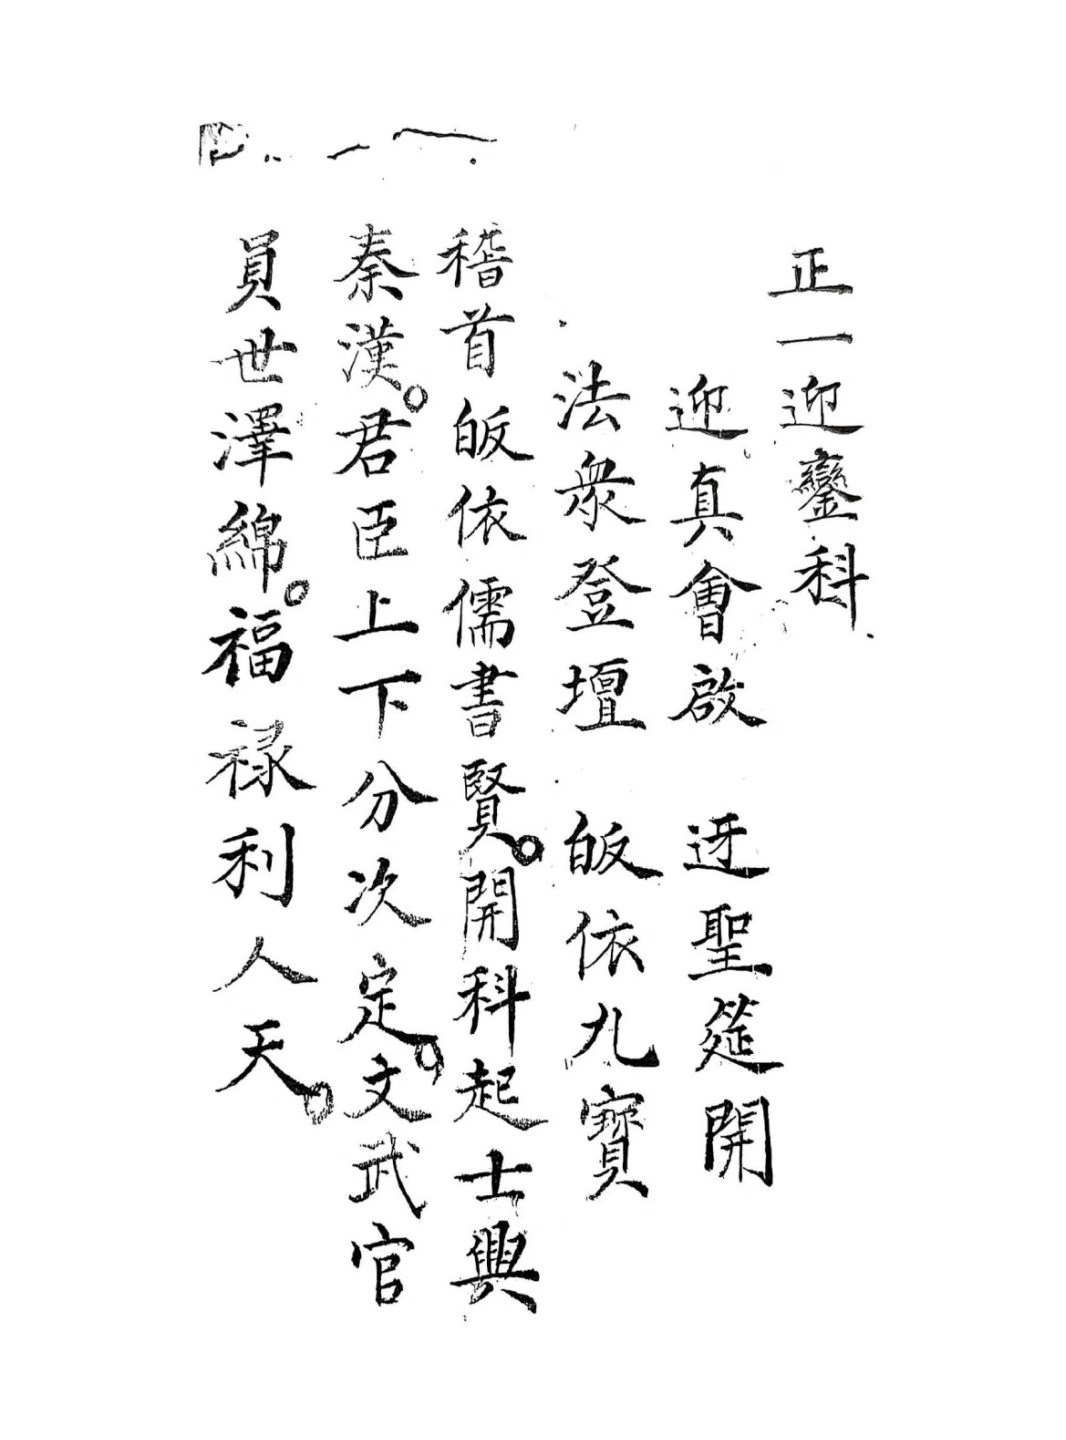 正一迎鑾科
迎真會啟　迓聖筵開
法衆登壇　皈依九寶
稽首皈依儒書賢。開科起士興
秦漢。君臣上下分次定。文武官
員世澤綿。福禄利人天。